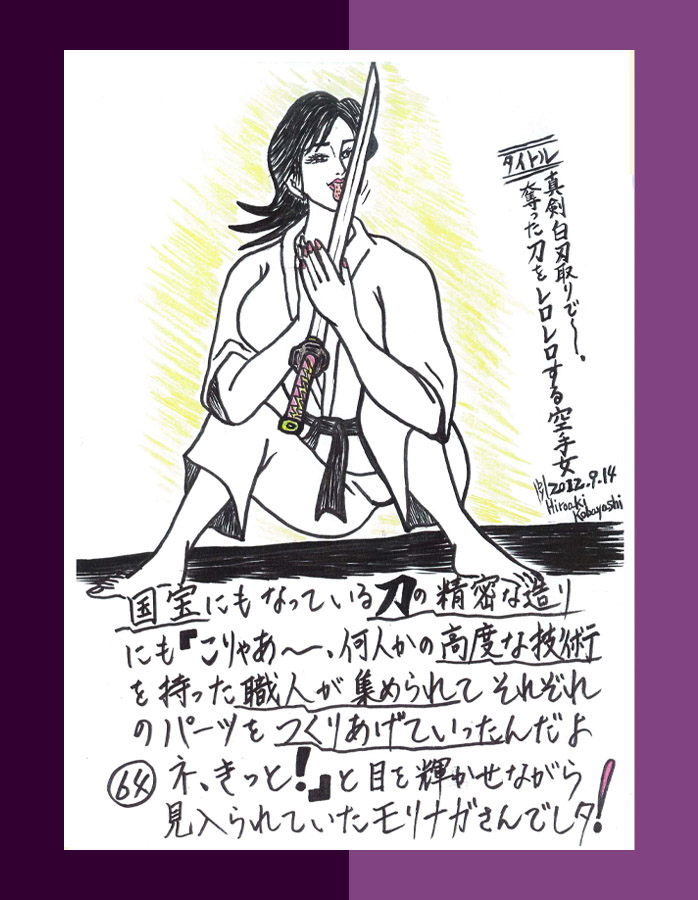 タイトル
真剣白刃取りで〜。
奪った刀をレロレロする空手女
2012.9.14
Hiroaki
Kobayashi
国宝にもなっている刀の精密な造り
にも『こりゃあ〜、何人かの高度な技術
を持った職人が集められてそれぞれ
のパーツをつくりあげていったんだよ
64
ネ、きっと!』と目を輝かせながら
見入られていたモリナガさんでしタ!